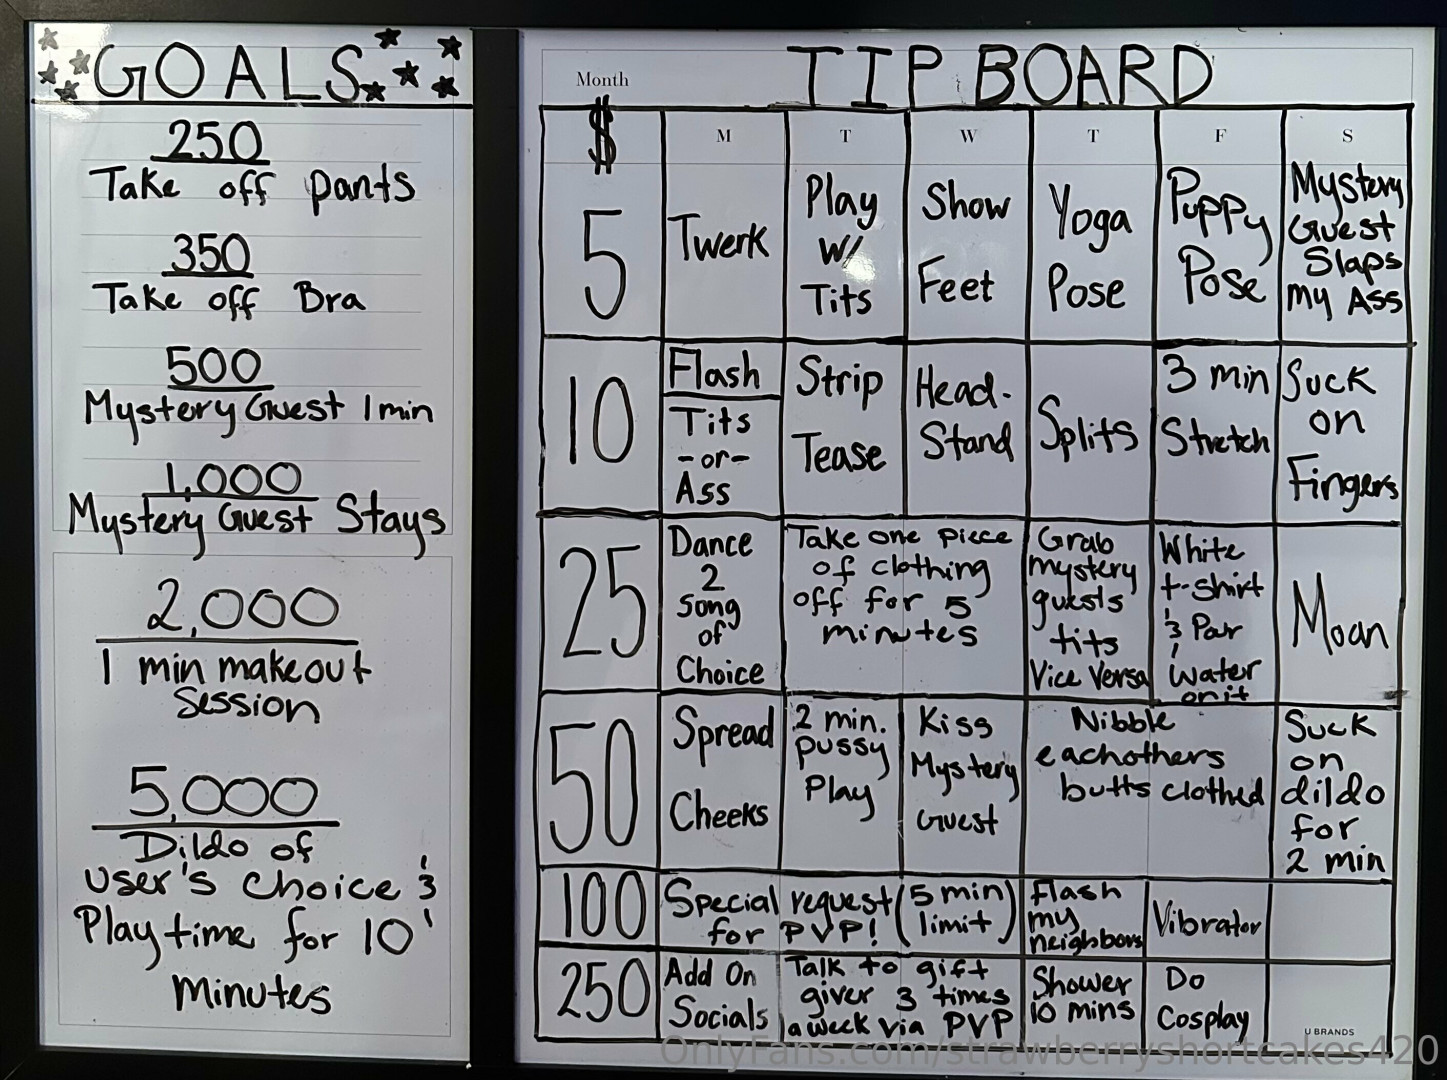 GOALS
250
Take off pants
350
Take off Bra
500
Mystery Guest 1min
1,000
Mystery Guest Stays
2,000
1 min makeout
Session
5,000
Dildo of
user's choice &
Play time for 10
Minutes
Month
TIP BOARD
$
M
T
W
T
F
S
5
Twerk
Play
w/
Tits
Show
Feet
Yoga
Pose
Puppy
Pose
Mystery
Guest
Slaps
my Ass
10
Flash
Tits
-or-
Ass
Strip
Tease
Head-
Stand
Splits
3 min
Stretch
Suck
on
Fingers
25
Dance
2
Song
of
Choice
Take one piece
of clothing
off for 5
minutes
Grab
mystery
guests
tits
Vice Versa
White
t-shirt
& Pour
water
on it
Moan
50
Spread
Cheeks
2 min.
pussy
Play
Kiss
Mystery
Guest
Nibble
eachothers
butts clothed
Suck
on
dildo
for
2 min
100
Special request (5 min
for PVP! limit)
Flash
my
neighbors
Vibrator
250
Add On
Socials
Talk to gift
giver 3 times
a week via PVP
Shower
10 mins
Do
Cosplay
U BRANDS
OnlyFans.com/strawberryshortcakes420